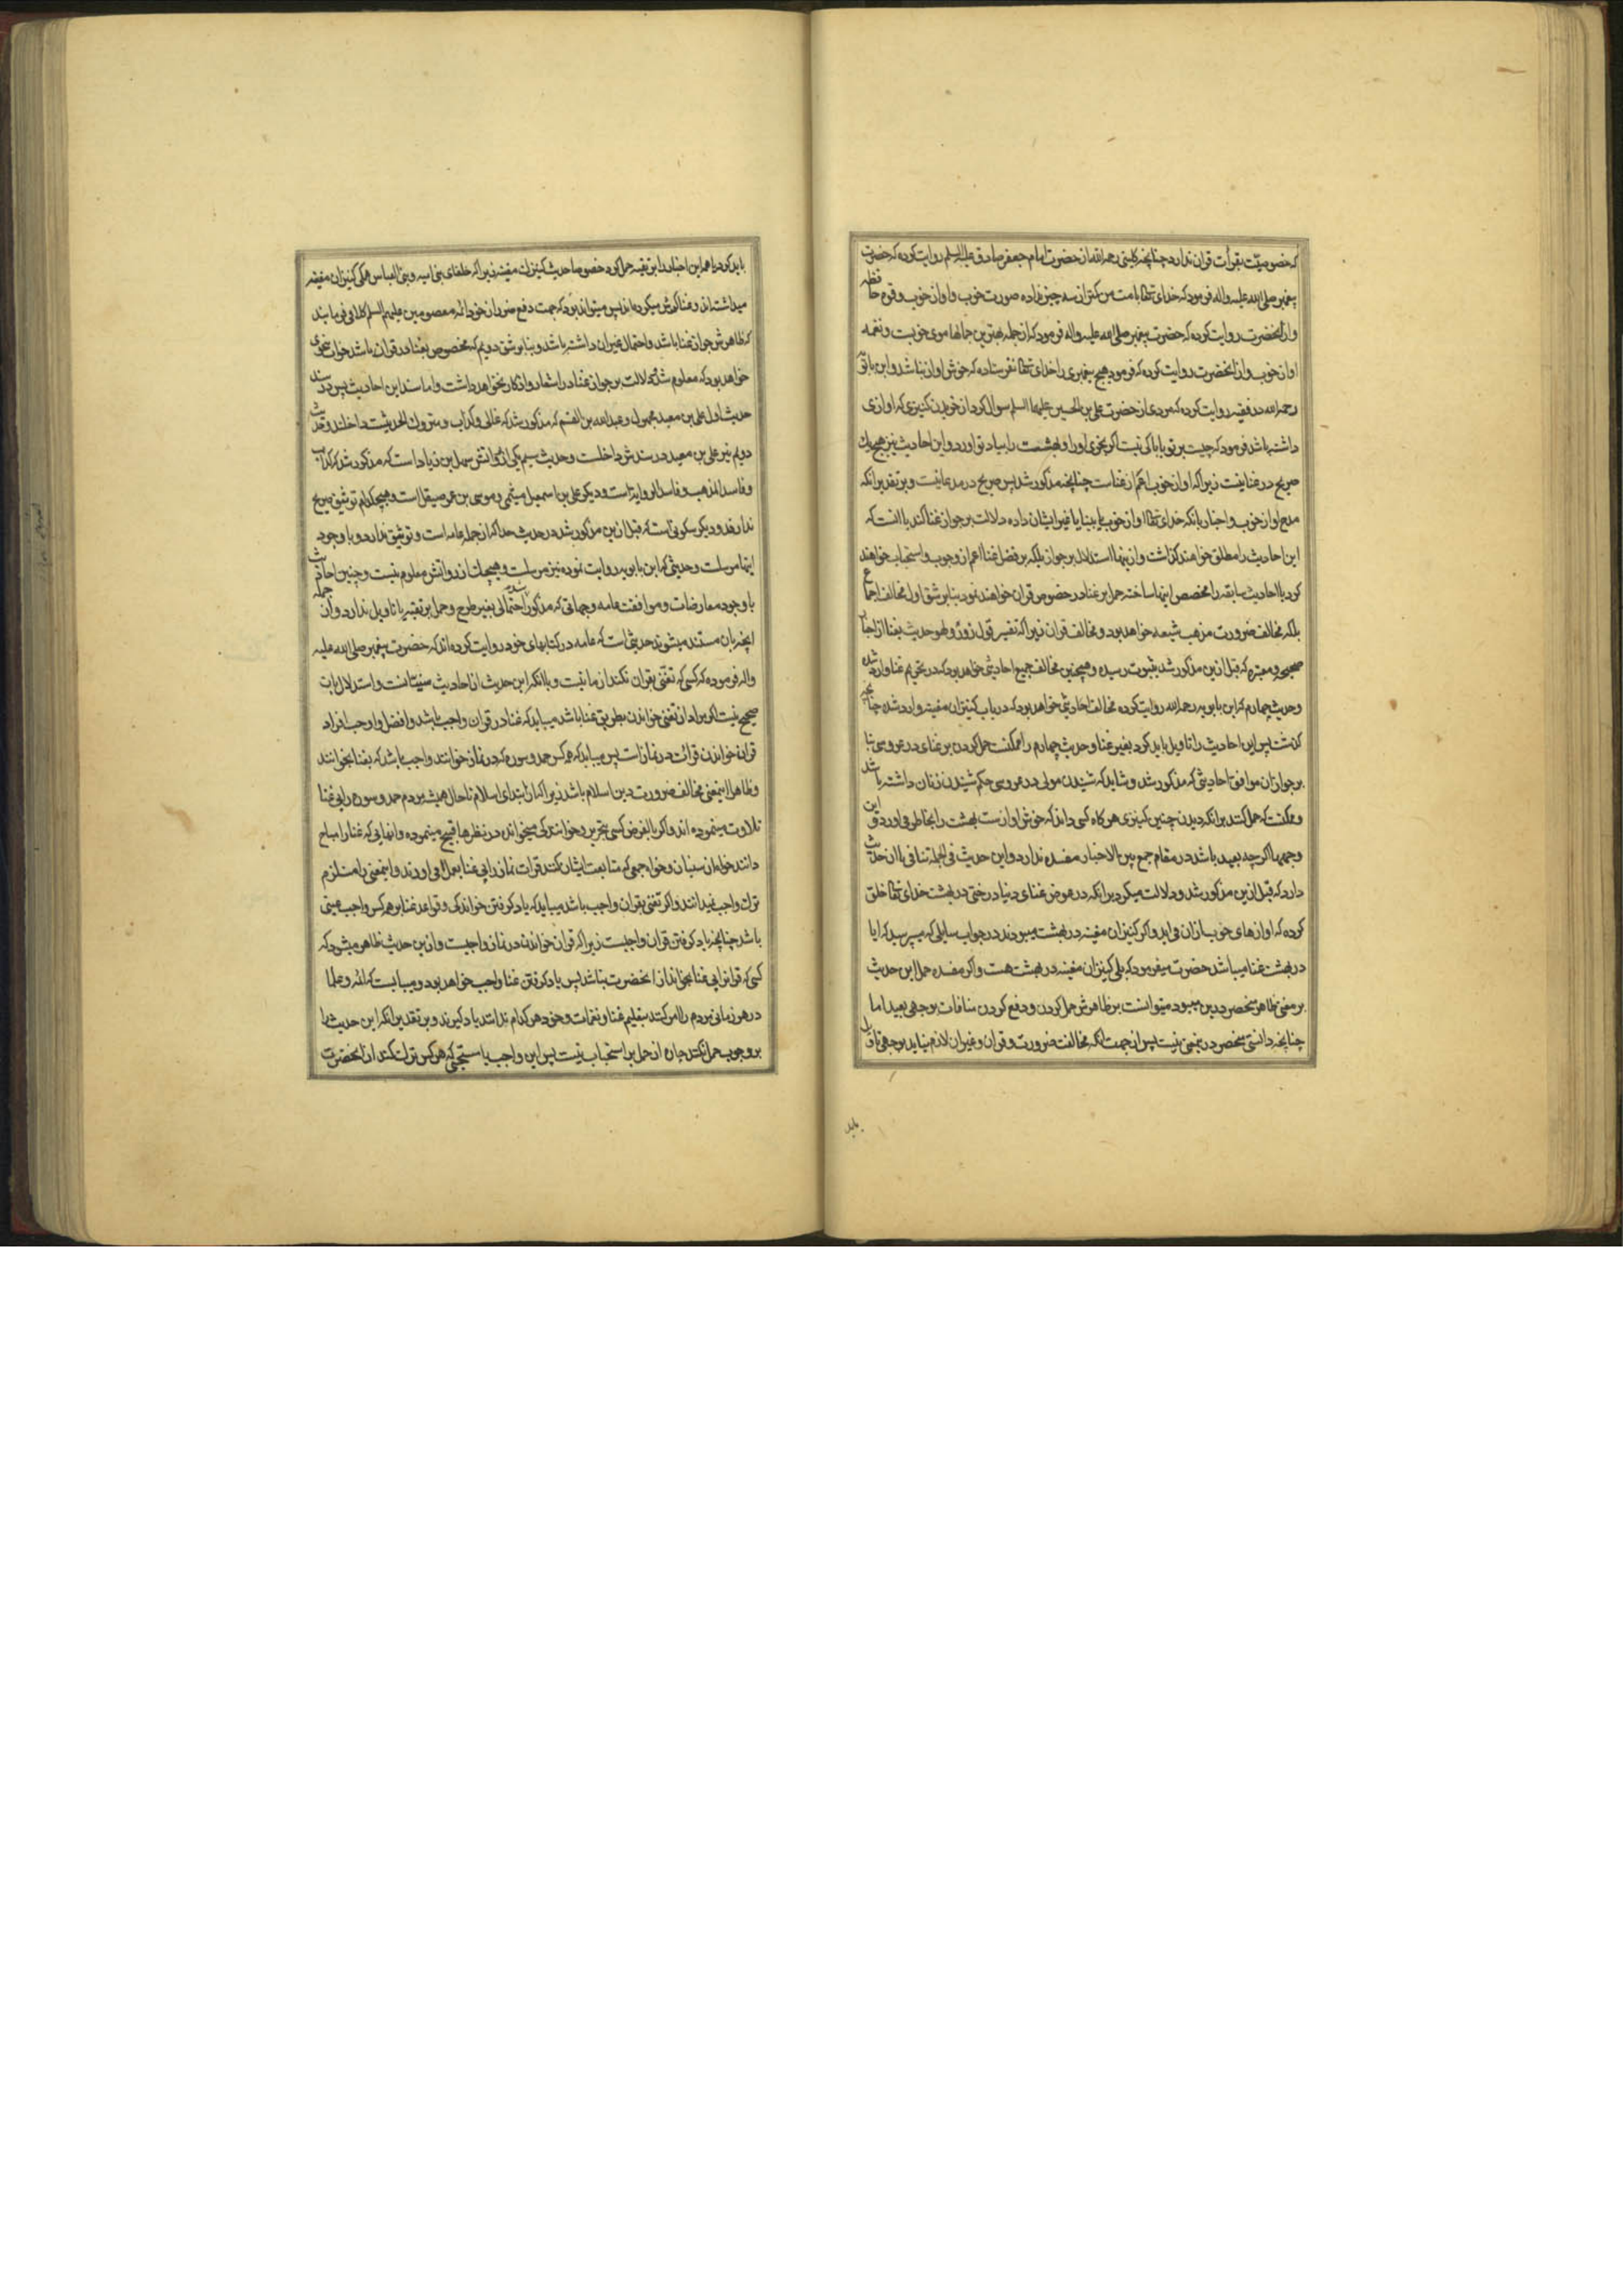 که خصوصیت بقرأت قران ندارد چنانچه کلینی رحمه الله از حضرت امام جعفر صادق علیه السلم روایت کرده که حضرت
پیغمبر صلی الله علیه واله فرمود که خدای تعالی بامت من کمتر از سه چیز نداده صورت خوب واواز خوب وقوه حافظه
واز انحضرت روایت کرده که حضرت پیغمبر صلی الله علیه واله فرمود که از جمله بهترین جمالها موی خوبست ونغمه
اواز خوب واز انحضرت روایت کرده که فرمود هیچ پیغمبری را خدای تعالی نفرستاده که خوش اواز نباشد وابن بابویه
رحمه الله در فقیه روایت کرده که مردی از حضرت علی بن الحسین علیهما السلم سوال کرد از خریدن کنیزی که اوازی
داشته باشد فرمود که چیست بر تو باکی نیست اگر بخری اورا وبهشت را بیاد تو اورد واین احادیث نیز هیچیك
صریح در غنا نیست زیرا که اواز خوب اعم از غناست چنانچه مذکور شد پس صریح در مدعا نیست وبر تقدیر انکه
مدح اواز خوب واخبار بانکه خدای تعالی اواز خوب بانبیا یا غیر ایشان داده دلالت بر جواز غنا کند یا انست که
این احادیث را مطلق خواهند گذاشت وازینها استدلال بر جواز بلکه بر فضل غنا اعم از وجوب واستحباب خواهند
کرد یا احادیث سابقه را مخصص اینها ساخته حمل بر غنا در خصوص قران خواهند نمود بنابر شق اول مخالف اجماع
بلکه مخالف ضرورت مذهب شیعه خواهد بود ومخالف قران زیرا که تفسیر قول زور ولهو حدیث بغنا از اخبار
صحیحه ومعتبره که قبل ازین مذکور شد بثبوت رسیده وهمچنین مخالف جمیع احادیثی خواهد بود که در تحریم غنا وارد شده
وحدیث چهارم که ابن بابویه رحمه الله روایت کرده مخالف احادیثی خواهد بود که در باب کنیزان مغنیه وارد شده چنانچه
گذشت پس این احادیث را تاویل باید کرد بغیر غنا وحدیث چهارم را ممکنست حمل کردن بر غنای در عروسی بنا
بر جواز ان موافق احادیثی که مذکور شد وشاید که شنیدن مولی در عروسی حکم شنیدن زنان داشته باشد
وممکنست که حمل کنند برانکه دیدن چنین کنیزی هرکاه کسی داند که خوش اوازست بهشت را بخاطر می اورد واین
وجهها اگرچه بعید باشد در مقام جمع بین الاخبار مفسده ندارد واین حدیث فی الجمله تنافی با ان حدیث
دارد که قبل ازین مذکور شد ودلالت میکرد برانکه در عوض غنای دنیا درختی در بهشت خدای تعالی خلق
کرده که اوازهای خوب ازان می اید واگر کنیزان مغنیه در بهشت میبودند در جواب سایلی که میپرسید که ایا
در بهشت غنا میباشد حضرت میفرمود که بلی کنیزان مغنیه در بهشت هست واگر مفسده حمل این حدیث
بر معنی ظاهر منحصر درین میبود میتوانست بر ظاهرش حمل کردن ودفع کردن منافات بوجهی بعید اما
چنانچه دانستی منحصر در همین نیست پس از جهت انکه مخالفت ضرورت وقران وغیر ان لازم نیاید بوجهی تاویل
باید
باید کرد یا همه این اخبار را بر تقیه حمل کرد خصوصا حدیث کنیزان مغنیه زیرا که خلفای بنی امیه وبنی العباس همگی کنیزان مغنیه
میداشته اند وغنا گوش میکرده اند پس میتواند بود که بجهت دفع ضرر از خود ائمه معصومین علیهم السلم کلامی فرمایند
که ظاهرش جواز غنا باشد واحتمال غیر ان داشته باشد وبنابر شق دویم که مخصوص بغنا در قران باشد جواب بنحوی
خواهد بود که معلوم شد که دلالت بر جواز غنا در اشعار واذکار نخواهد داشت واما سند این احادیث پس در سند
حدیث اول علی بن معبد مجهول وعبدالله بن القسم که مذکور شد که غالی وکذاب ومتروك الحدیثست داخلند وحدیث
دویم نیز علی بن معبد در سندش داخلست وحدیث سیم یکی از رواتش سهل بن زیاد است که مذکور شد که کذاب
وفاسد المذهب وفاسد الروایه است ودیگر علی بن اسمعیل میثمی وموسی بن عمر صیقل است وهیچکدام توثیق صریح
ندارند ودیگر سکونی است که قبل ازین مذکور شد در حدیث حدا که از جمله عامه است وتوثیق ندارد وبا وجود
اینها مرسلست وحدیثی که ابن بابویه روایت نموده نیز مرسلست وهیچیك از رواتش معلوم نیست وچنین احادیث
با وجود معارضات وموافقت عامه وجهاتی که مذکور شد احتمالی بغیر طرح وحمل بر تقیه یا تاویل ندارد واز جمله
انچه بان مستند میشوند حدیثی است که عامه در کتابهای خود روایت کرده اند که حضرت پیغمبر صلی الله علیه
واله فرموده که کسی که تغنی بقران نکند از ما نیست وبا انکه این حدیث از احادیث سنیانست واستدلال بان
صحیح نیست اگر مراد از تغنی خواندن بطریق غنا باشد میباید که غنا در قران واجب باشد وافضل واوجب افراد
قران خواندن قرائت در نماز است پس میباید که هرکس حمد وسوره که در نماز خوانند واجب باشد که بغنا بخوانند
وظاهرا اینمعنی مخالف ضرورت دین اسلام باشد زیرا که از ابتدای اسلام تا حال همیشه مردم حمد وسوره را بی غنا
تلاوت مینموده اند واگر بالفرض کسی بتحریر وخوانندگی میخوانده در نظرها قبیح مینموده وانهایی که غنا را مباح
دانند خواه از سنیان وخواه جمعی که متابعت ایشان کنند قرات نماز را بی غنا بعمل می اورند واینمعنی را مستلزم
ترك واجب نمیدانند واگر تغنی بقران واجب باشد میباید که یاد کرفتن خوانندگی وقواعد غنا بر هرکس واجب عینی
باشد چنانچه یاد کرفتن قران واجبست زیرا که قران خواندن در نماز واجبست وازین حدیث ظاهر میشود که
کسی که قرانرا بی غنا بخواند از انحضرت نباشد پس یاد کرفتن غنا واجب خواهد بود ومیبایست که ائمه وعلما
در هر زمانی مردم را امر کنند بتعلیم غنا ونغمات وخود هرکدام ندانند یاد کیرند وبر تقدیر انکه این حدیث را
بر وجوب حمل نکنند چاره از حمل بر استحباب نیست پس این واجب یا سنتیست که هرکس ترك کند از انحضرت